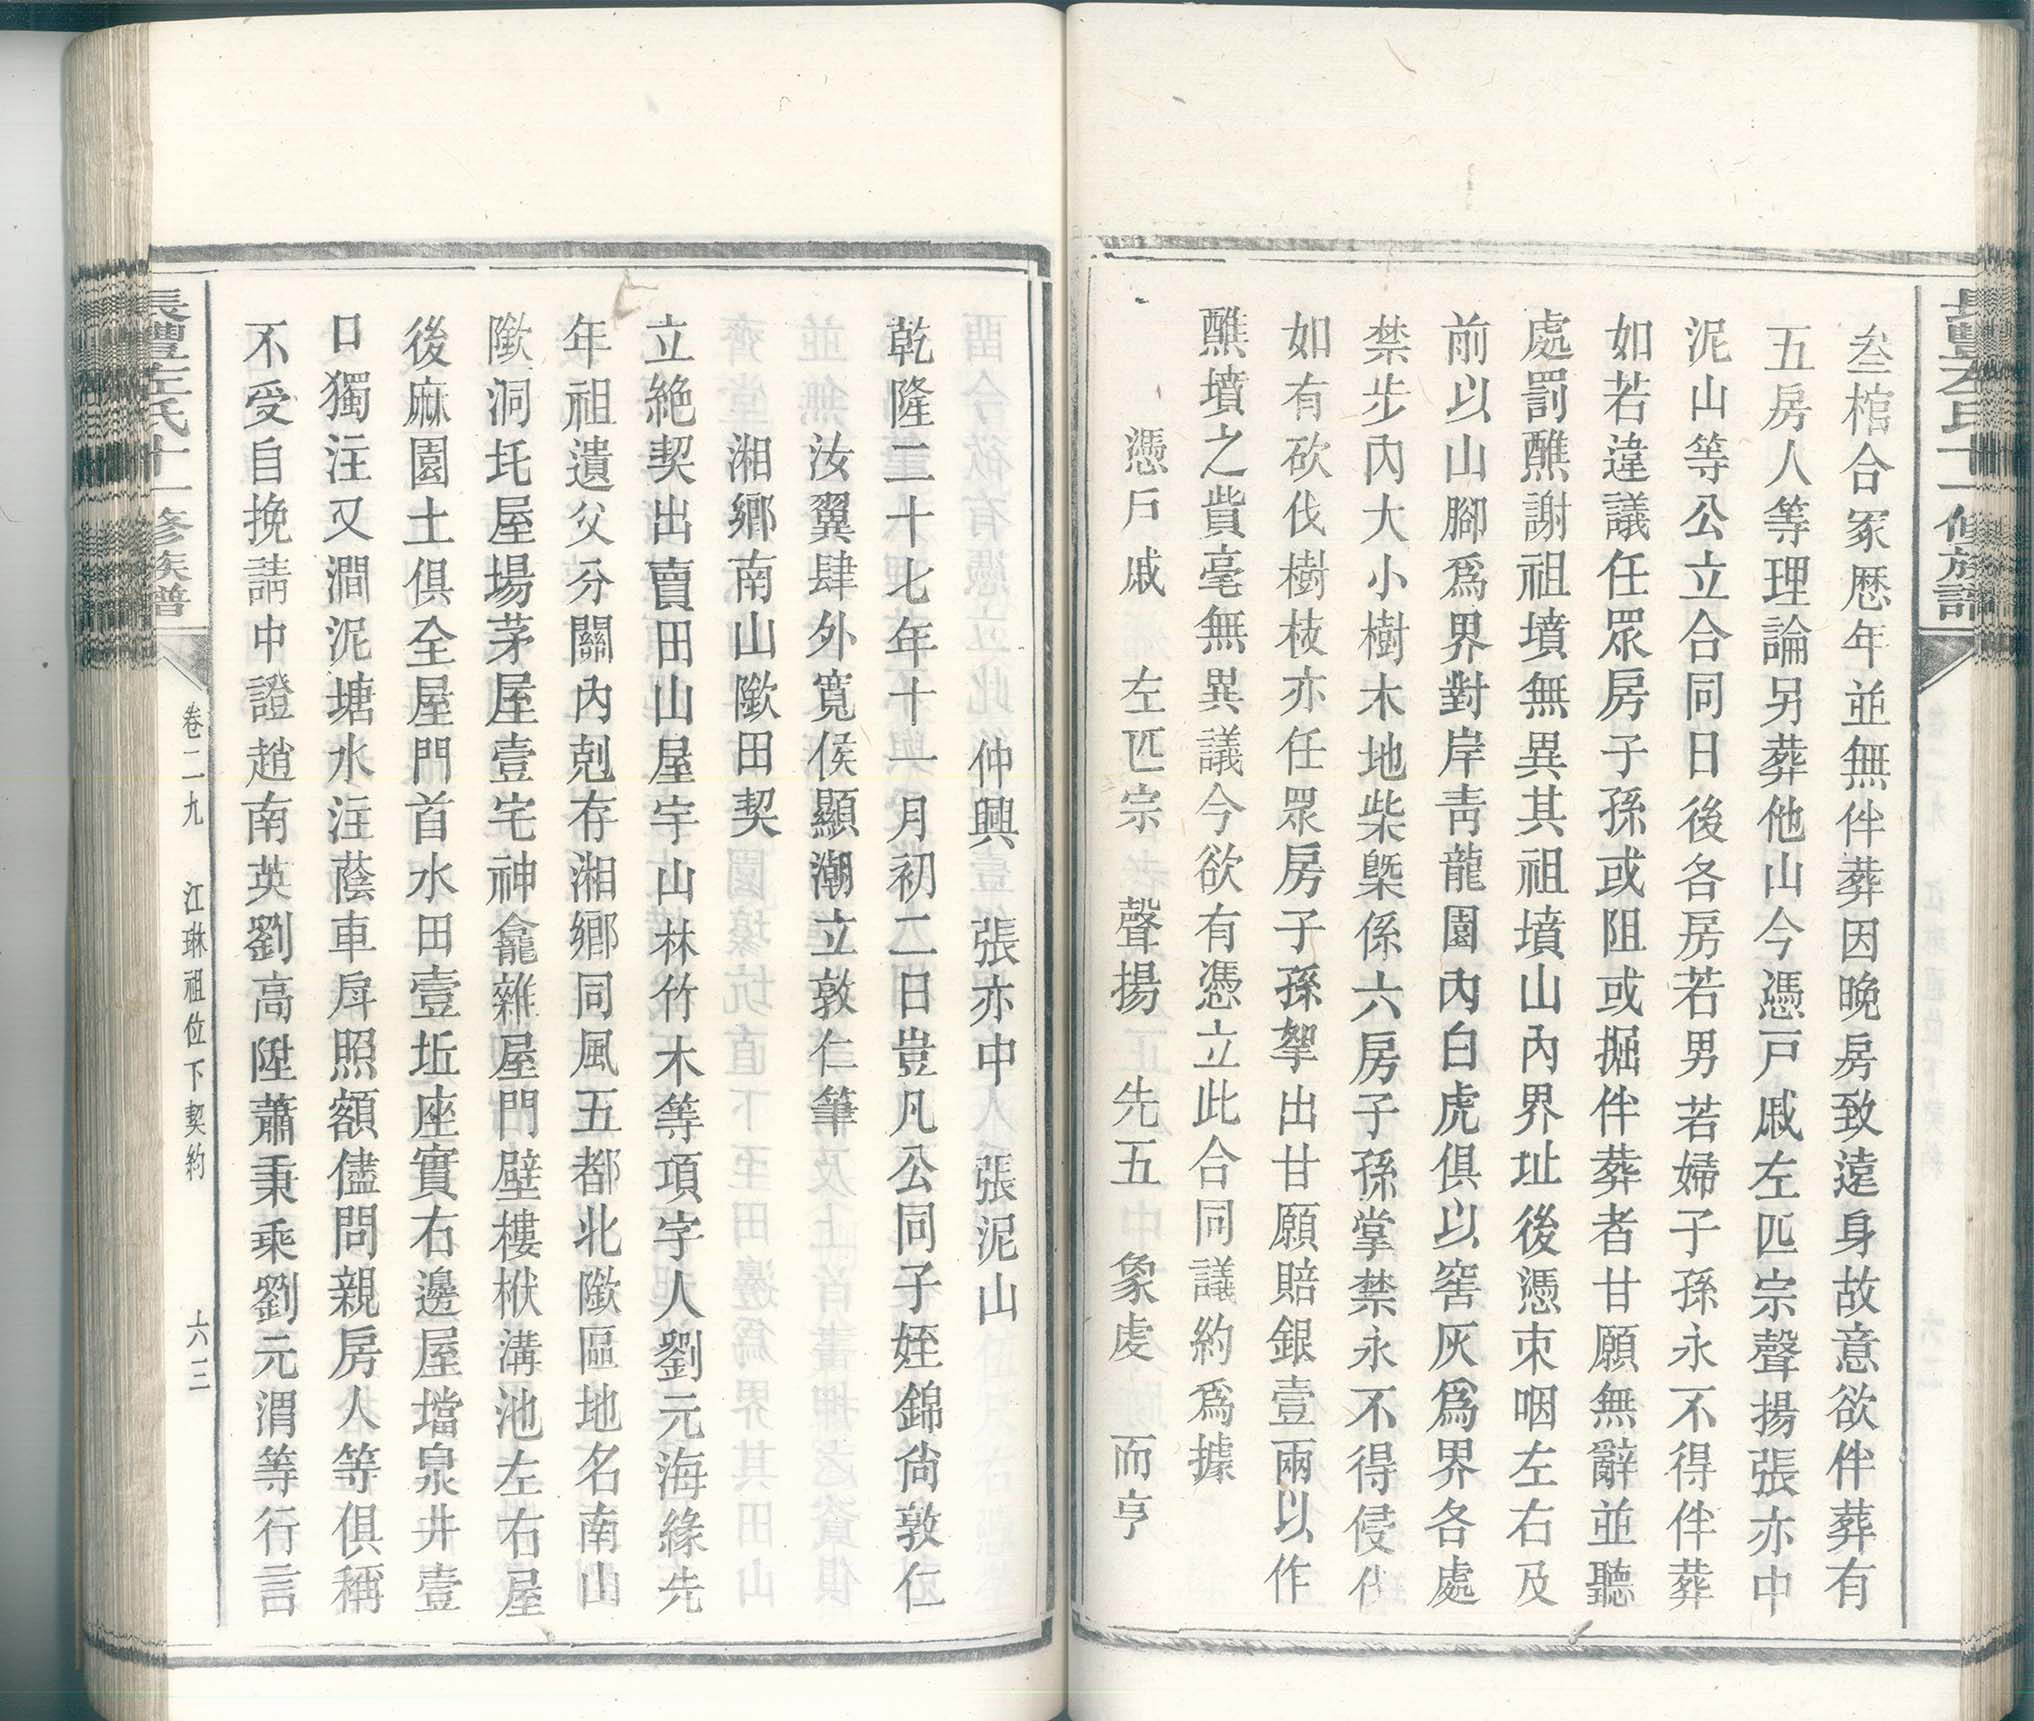 長豊左氏十一修族譜
叁棺合冢歷年並無伴葬因晚房致遠身故意欲伴葬有
五房人等理論另葬他山今憑戸戚左匹宗聲揚張亦中
泥山等公立合同日後各房若男若婦子孫永不得伴葬
如若違議任眾房子孫或阻或掘伴葬者甘願無辭並聽
處罰醮謝祖墳無異其祖墳山內界址後憑朿咽左右及
前以山腳爲界對岸靑龍園內白虎俱以窖灰爲界各處
禁步內大小樹木地柴槩係六房子孫掌禁永不得侵伐
如有砍伐樹枝亦任眾房子孫拏出甘願賠銀壹兩以作
醮墳之貲毫無異議今欲有憑立此合同議約爲據
憑戸戚　左匹宗　聲揚　先五　象虔　而亨
仲興　張亦中　張泥山
乾隆二十七年十一月初二日豈凡公同子姪錦尙敦仁
汝翼肆外寬俟顯潮立敦仁筆
湘鄉南山歘田契
立絶契出賣田山屋宇山林竹木等項字人劉元海緣先
年祖遺父分關內剋存湘鄉同風五都北歘區地名南山
歘洞圫屋場茅屋壹宅神龕雜屋門壁樓栿溝池左右屋
後麻園土俱全屋門首水田壹坵座實右邊屋壋泉井壹
口獨注又澗泥塘水注蔭車戽照額儘問親房人等俱稱
不受自挽請中證趙南英劉高陞蕭秉乘劉元渭等行言
長豊左氏十一修族譜
卷二九　江琳祖位下契約　六三